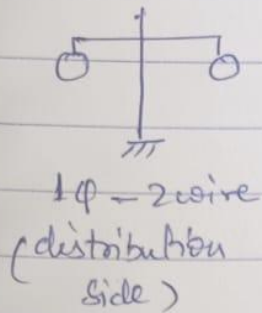 1φ - 2 wire
(distribution
side)